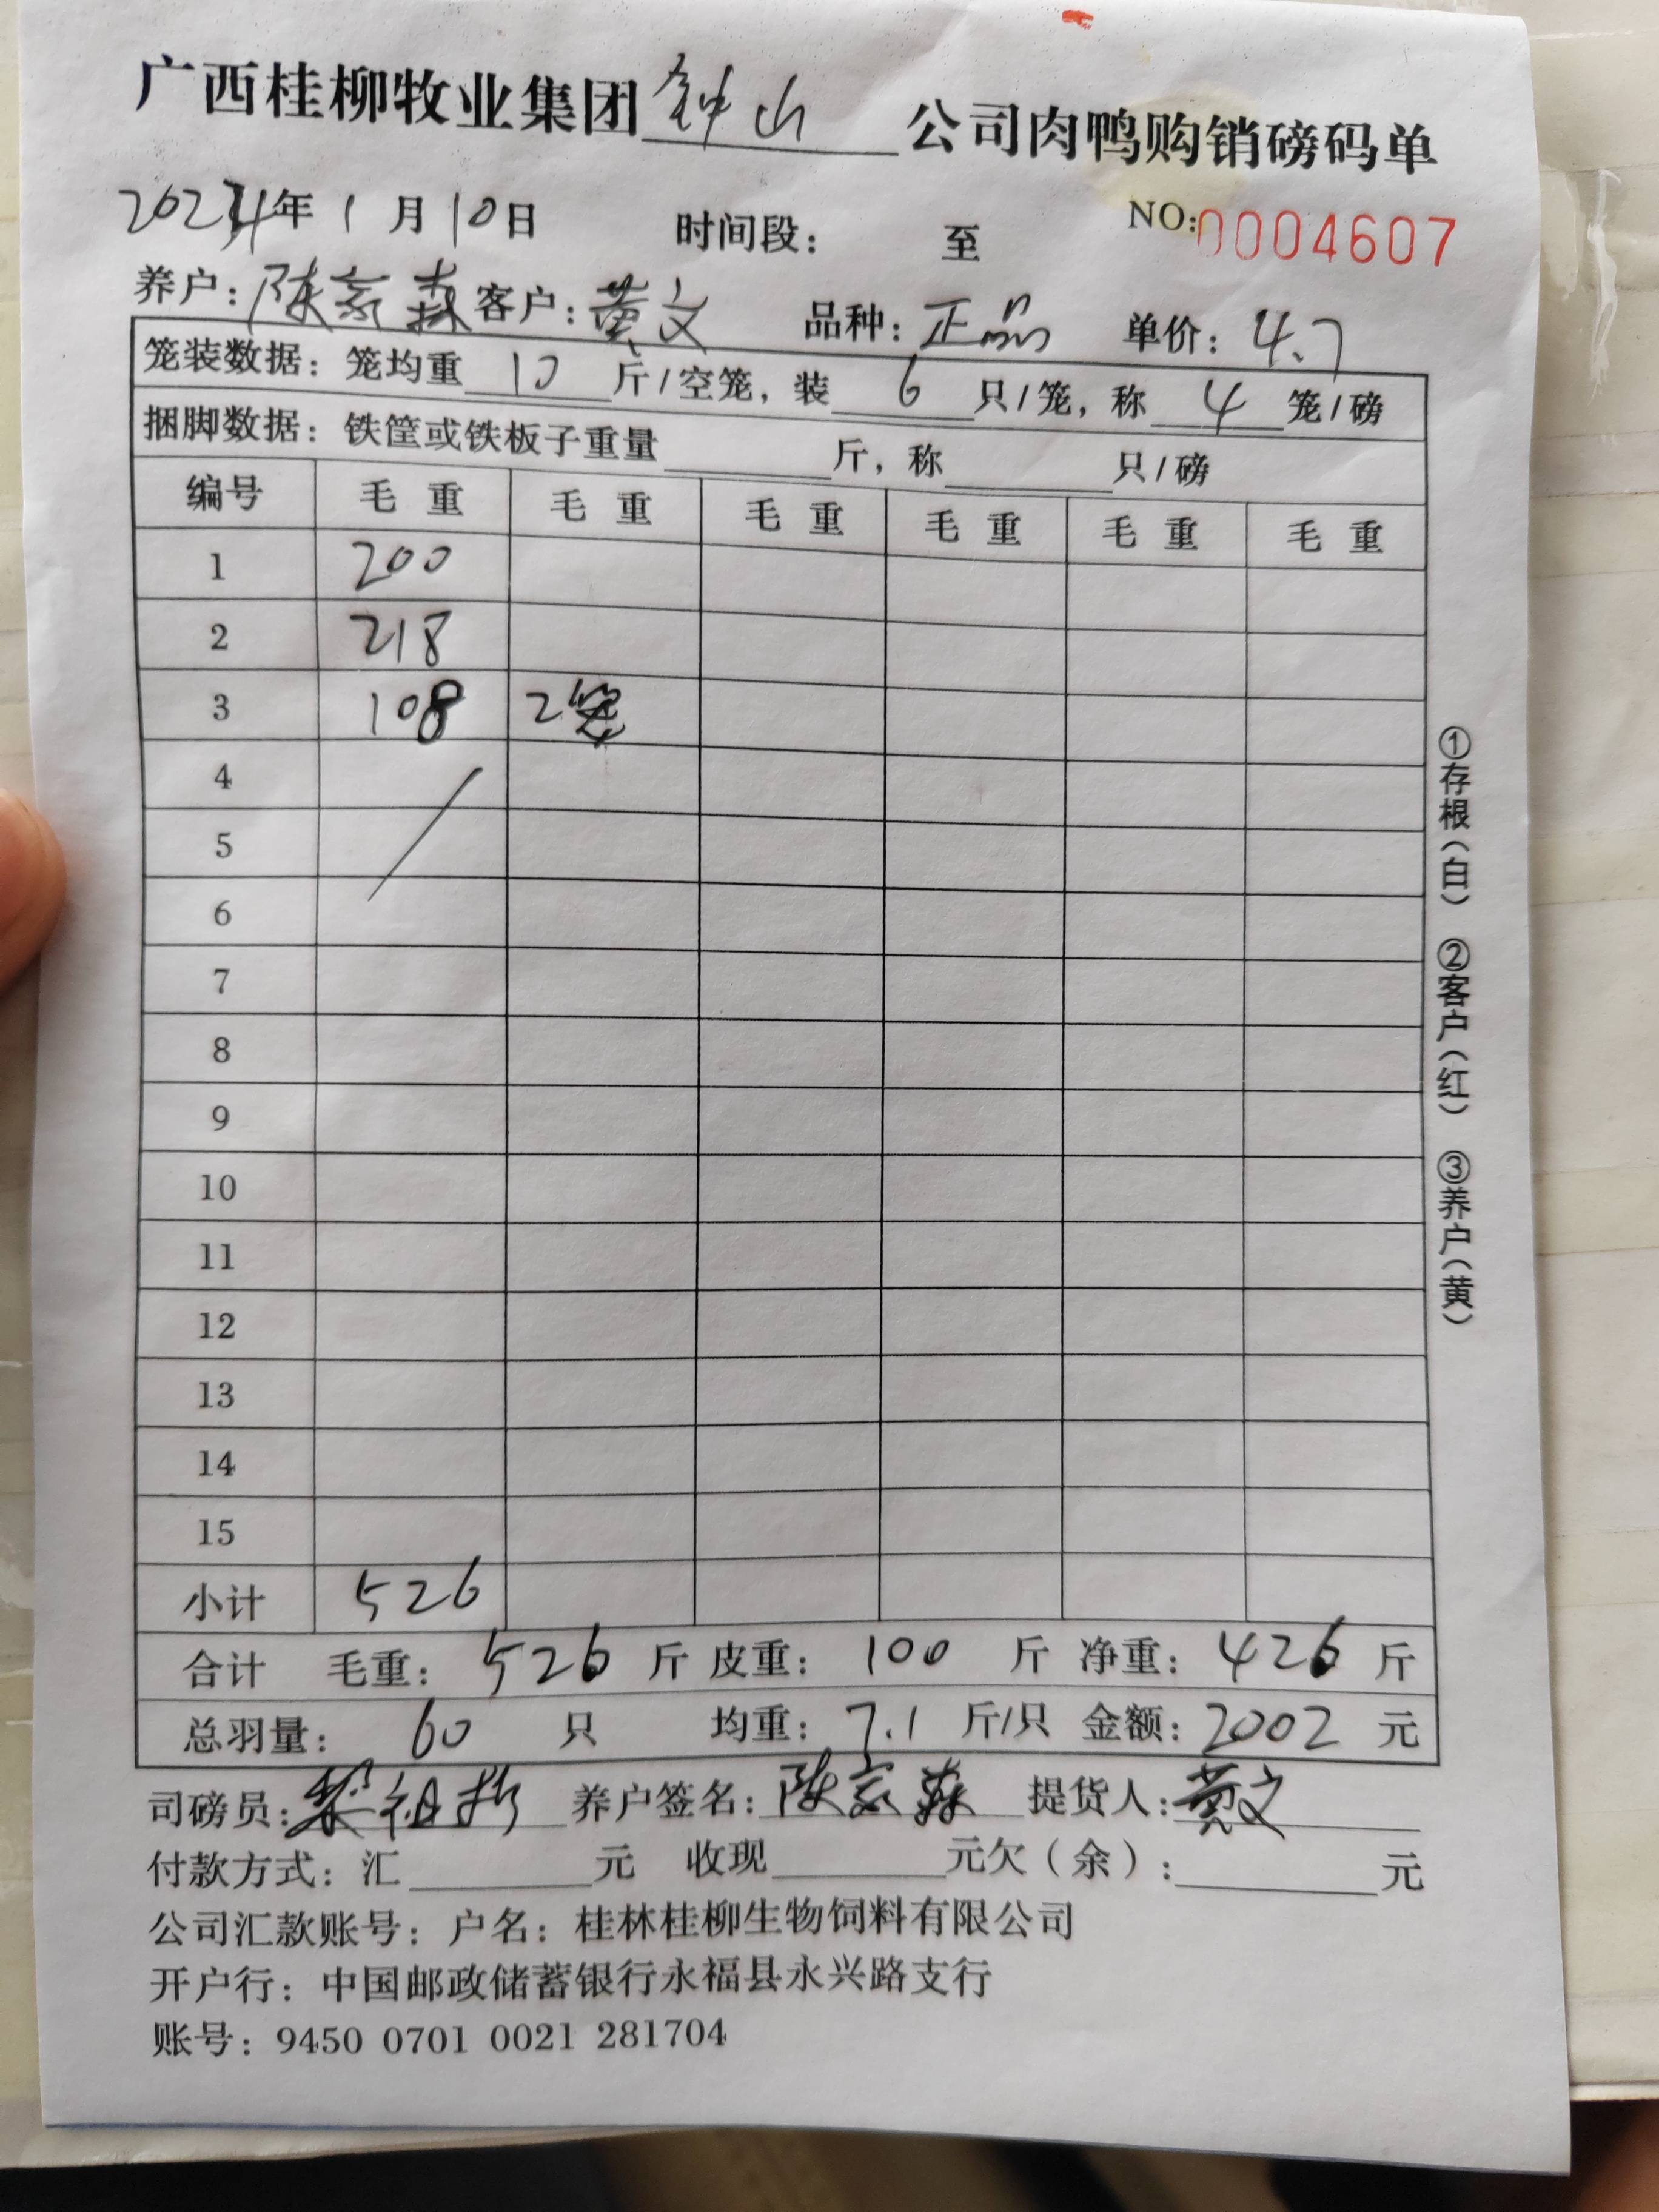 广西桂柳牧业集团钟山公司肉鸭购销磅码单
2024年1月10日 时间段： 至 NO:0004607
养户：陈家森 客户：黄文 品种：正品 单价：4.7
笼装数据：笼均重10斤/空笼，装6只/笼，称4笼/磅
捆脚数据：铁筐或铁板子重量 斤，称 只/磅
编号 毛重 毛重 毛重 毛重 毛重 毛重
1 200
2 218
3 108 2笼
4
5
6
7
8
9
10
11
12
13
14
15
小计 526
合计 毛重：526斤 皮重：100斤 净重：426斤
总羽量：60只 均重：7.1斤/只 金额：2002元
司磅员：黎祖 养户签名：陈家森 提货人：黄文
付款方式：汇 元 收现 元欠（余）： 元
公司汇款账号：户名：桂林桂柳生物饲料有限公司
开户行：中国邮政储蓄银行永福县永兴路支行
账号：9450 0701 0021 281704
①存根（白） ②客户（红） ③养户（黄）